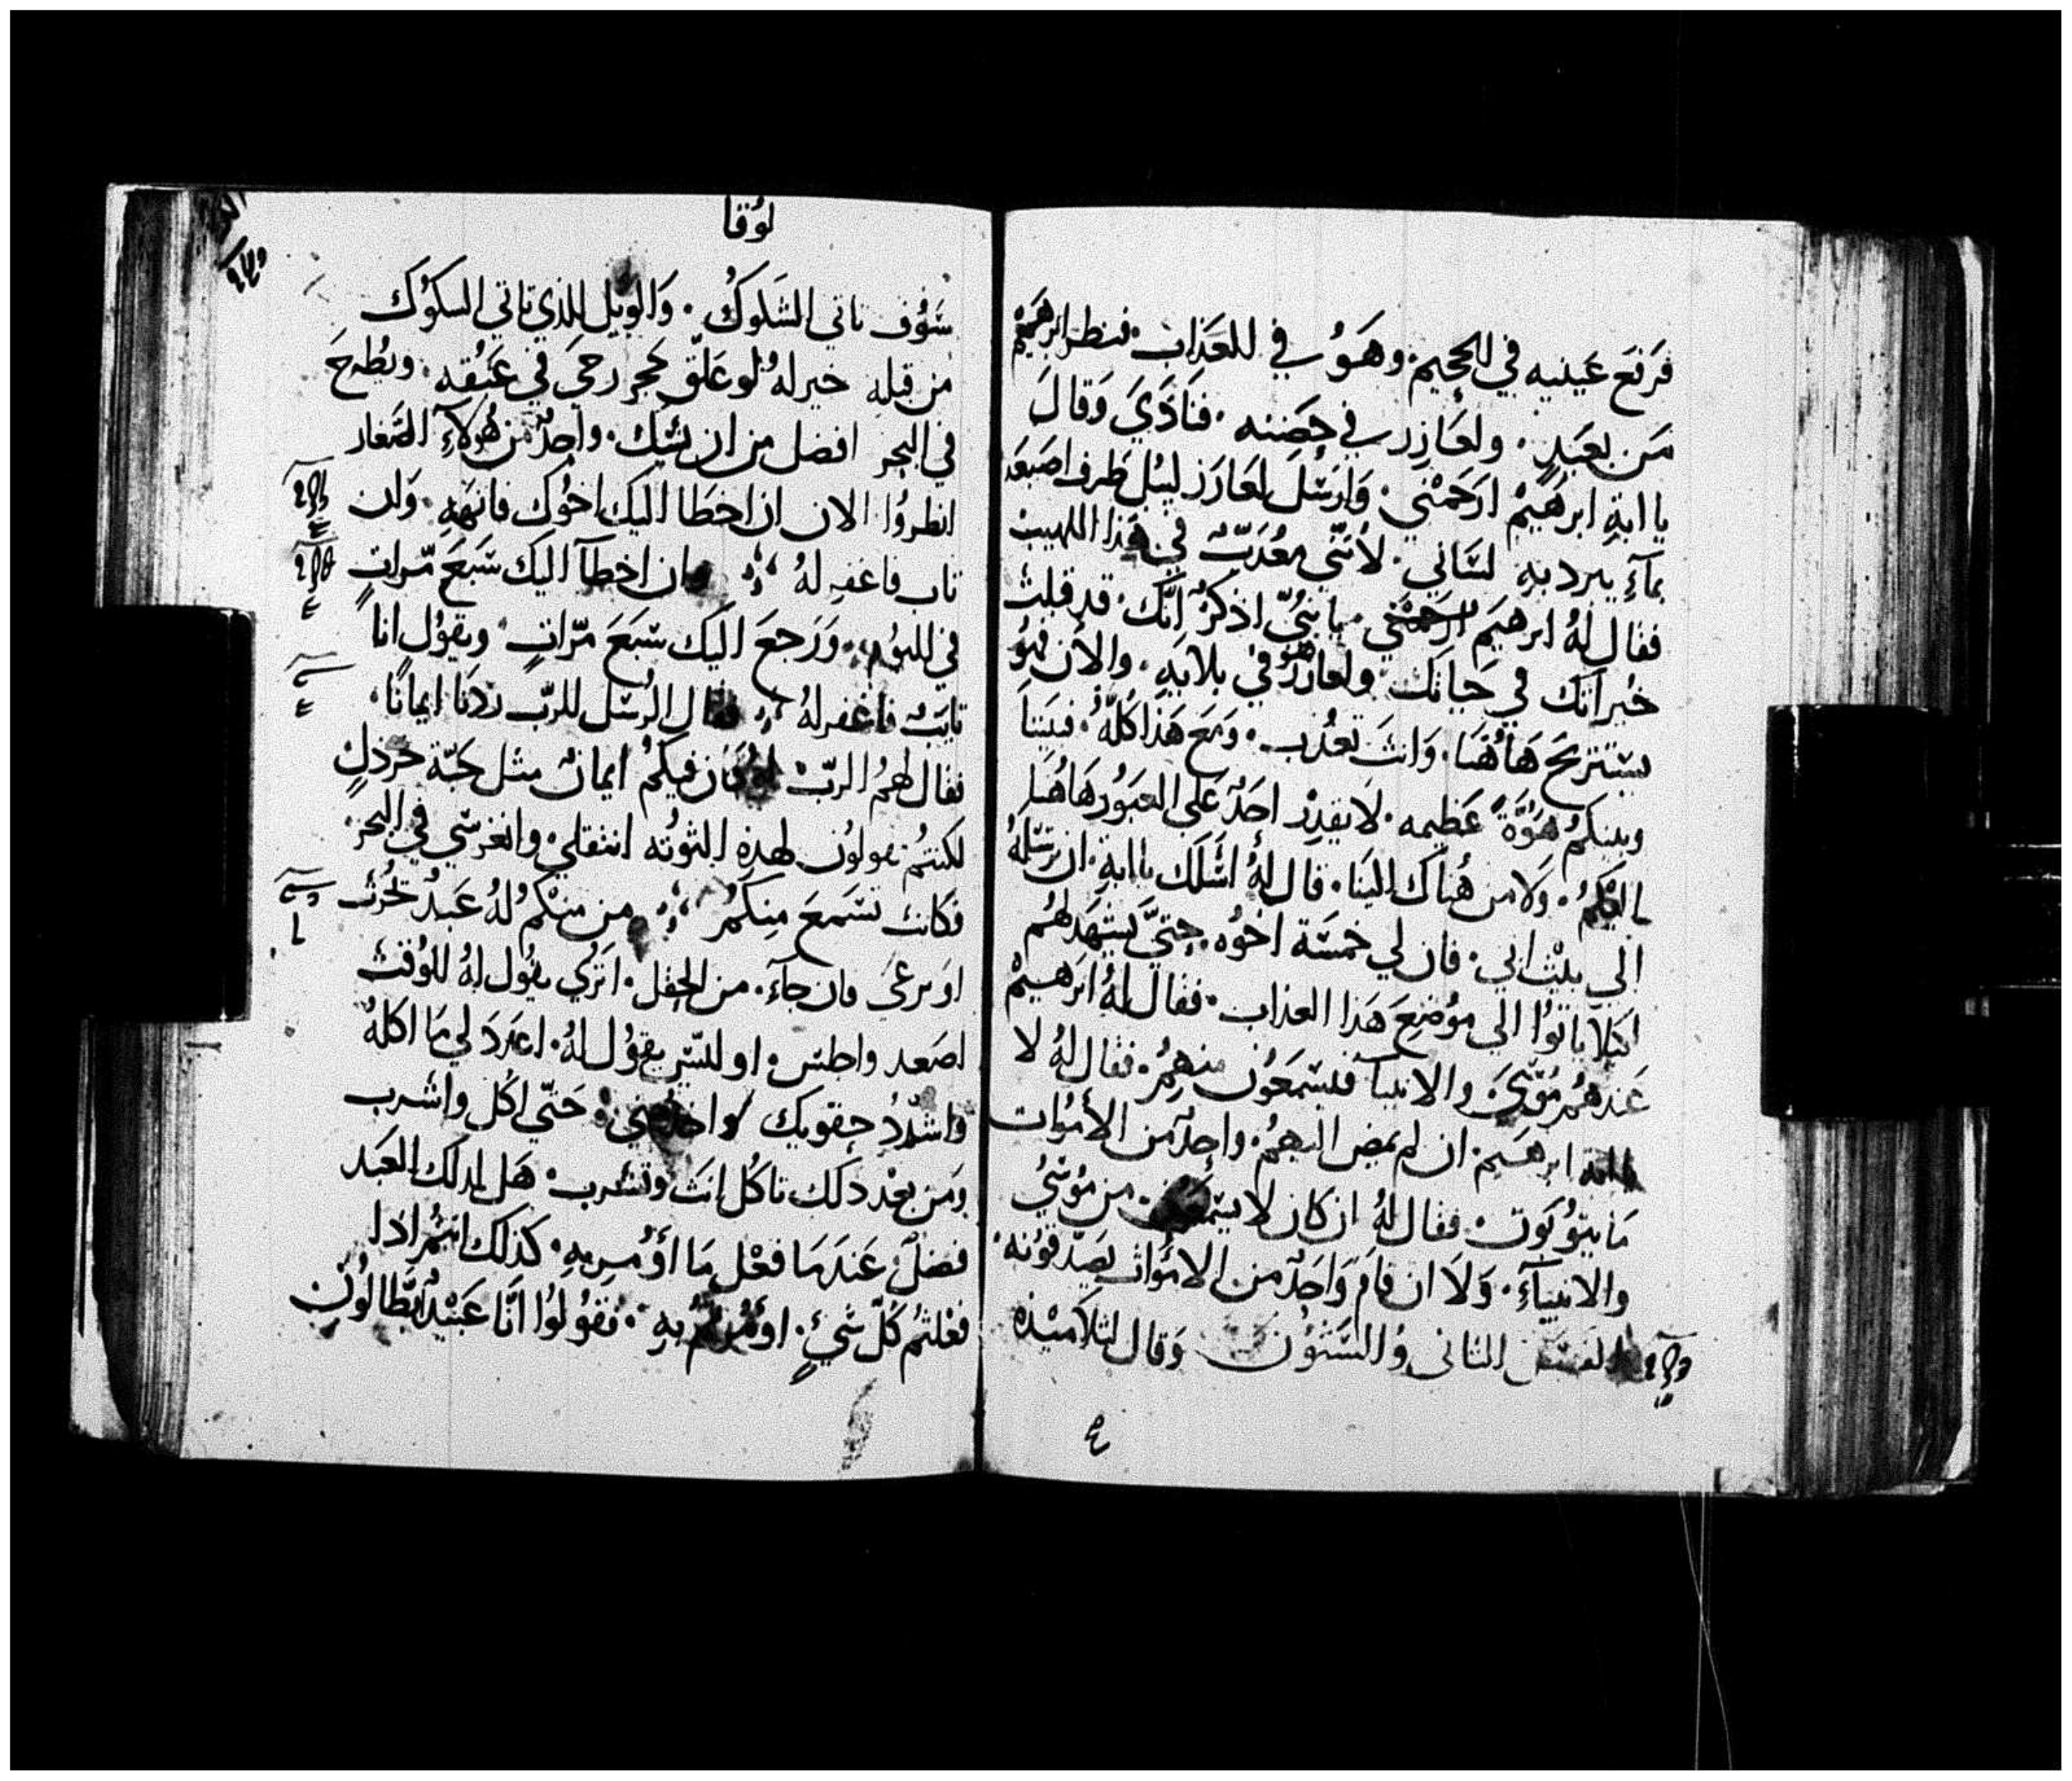 فرفع عينيه في الجحيم. وهو في العذاب. فنظر ابرهيم
من بعيد. ولعازر في حضنه. فنادي وقال
يا ابة ابرهيم ارحمني. وارسل لعازر ليبل طرف اصبعه
بمآءِ يبرد به لساني. لأنني معذب في هذا اللهيب
فقال له ابرهيم ارحمني يا بني اذكر انك. قد قبلت
خيراتك في حياتك ولعازر في بلايه. والآن فهو
يستريح هاهنا. وانت تعذب. ومع هذا كله. فبيننا
وبينكم هوة عظيمه. لا يقدر احد على العبور هاهنا
اليكم. ولا من هناك الينا. قال له اسلك يا ابة. ان ترسله
الي بيت ابي. فان لي خمسة اخوه. حتي يشهد لهم
لكيلا ياتوا الي موضع هذا العذاب. فقال له ابرهيم
عندهم موسي والانبيآ فليسمعون منهم. فقال له لا
يا ابة ابرهيم. ان لم يمض اليهم. واحد من الأموات
ما يتوبون. فقال له ان كان لا يسمعون. من موسي
والانبيآءِ. ولا ان قام واحد من الاموات يصدقونه.
الفصل الثاني والستون وقال لتلاميذه
٤
لوقا
سوف تاتي الشكوك. والويل للذي تاتي الشكوك
من قبله خير له لو علق حجر رحي في عنقه. ويطرح
في البحر افضل من ان يشك. واحد من هولآءِ الصغار
انظروا الان ان اخطا اليك اخوك فانهه. وان
تاب فاغفر له وان اخطآ اليك سبع مرات
في اليوم. ورجع اليك سبع مرات. ويقول انا
تايب فاغفر له فقال الرسل للرب زدنا ايمانًا.
فقال لهم الرب لو كان فيكم ايمان مثل حبة خردل
لكنتم تقولون لهذه التوته انتقلي. وانغرسي في البحر.
فكانت تسمع منكم من منكم له عبد يحرث
او يرعى فان جآءَ. من الحقل. اتري يقول له للوقت
اصعد واجلس. او ليس يقول له. اعدد لي ما اكله
واشدد حقويك واخدمني. حتي اكل واشرب
ومن بعد دلك تاكل انت وتشرب. هل لدلك العبد
فضل عندما فعل ما أؤمر به. كذلك انتم اذا
فعلتم كل شيءٍ. اؤمرتم به. فقولوا انّا عبيد بطالون